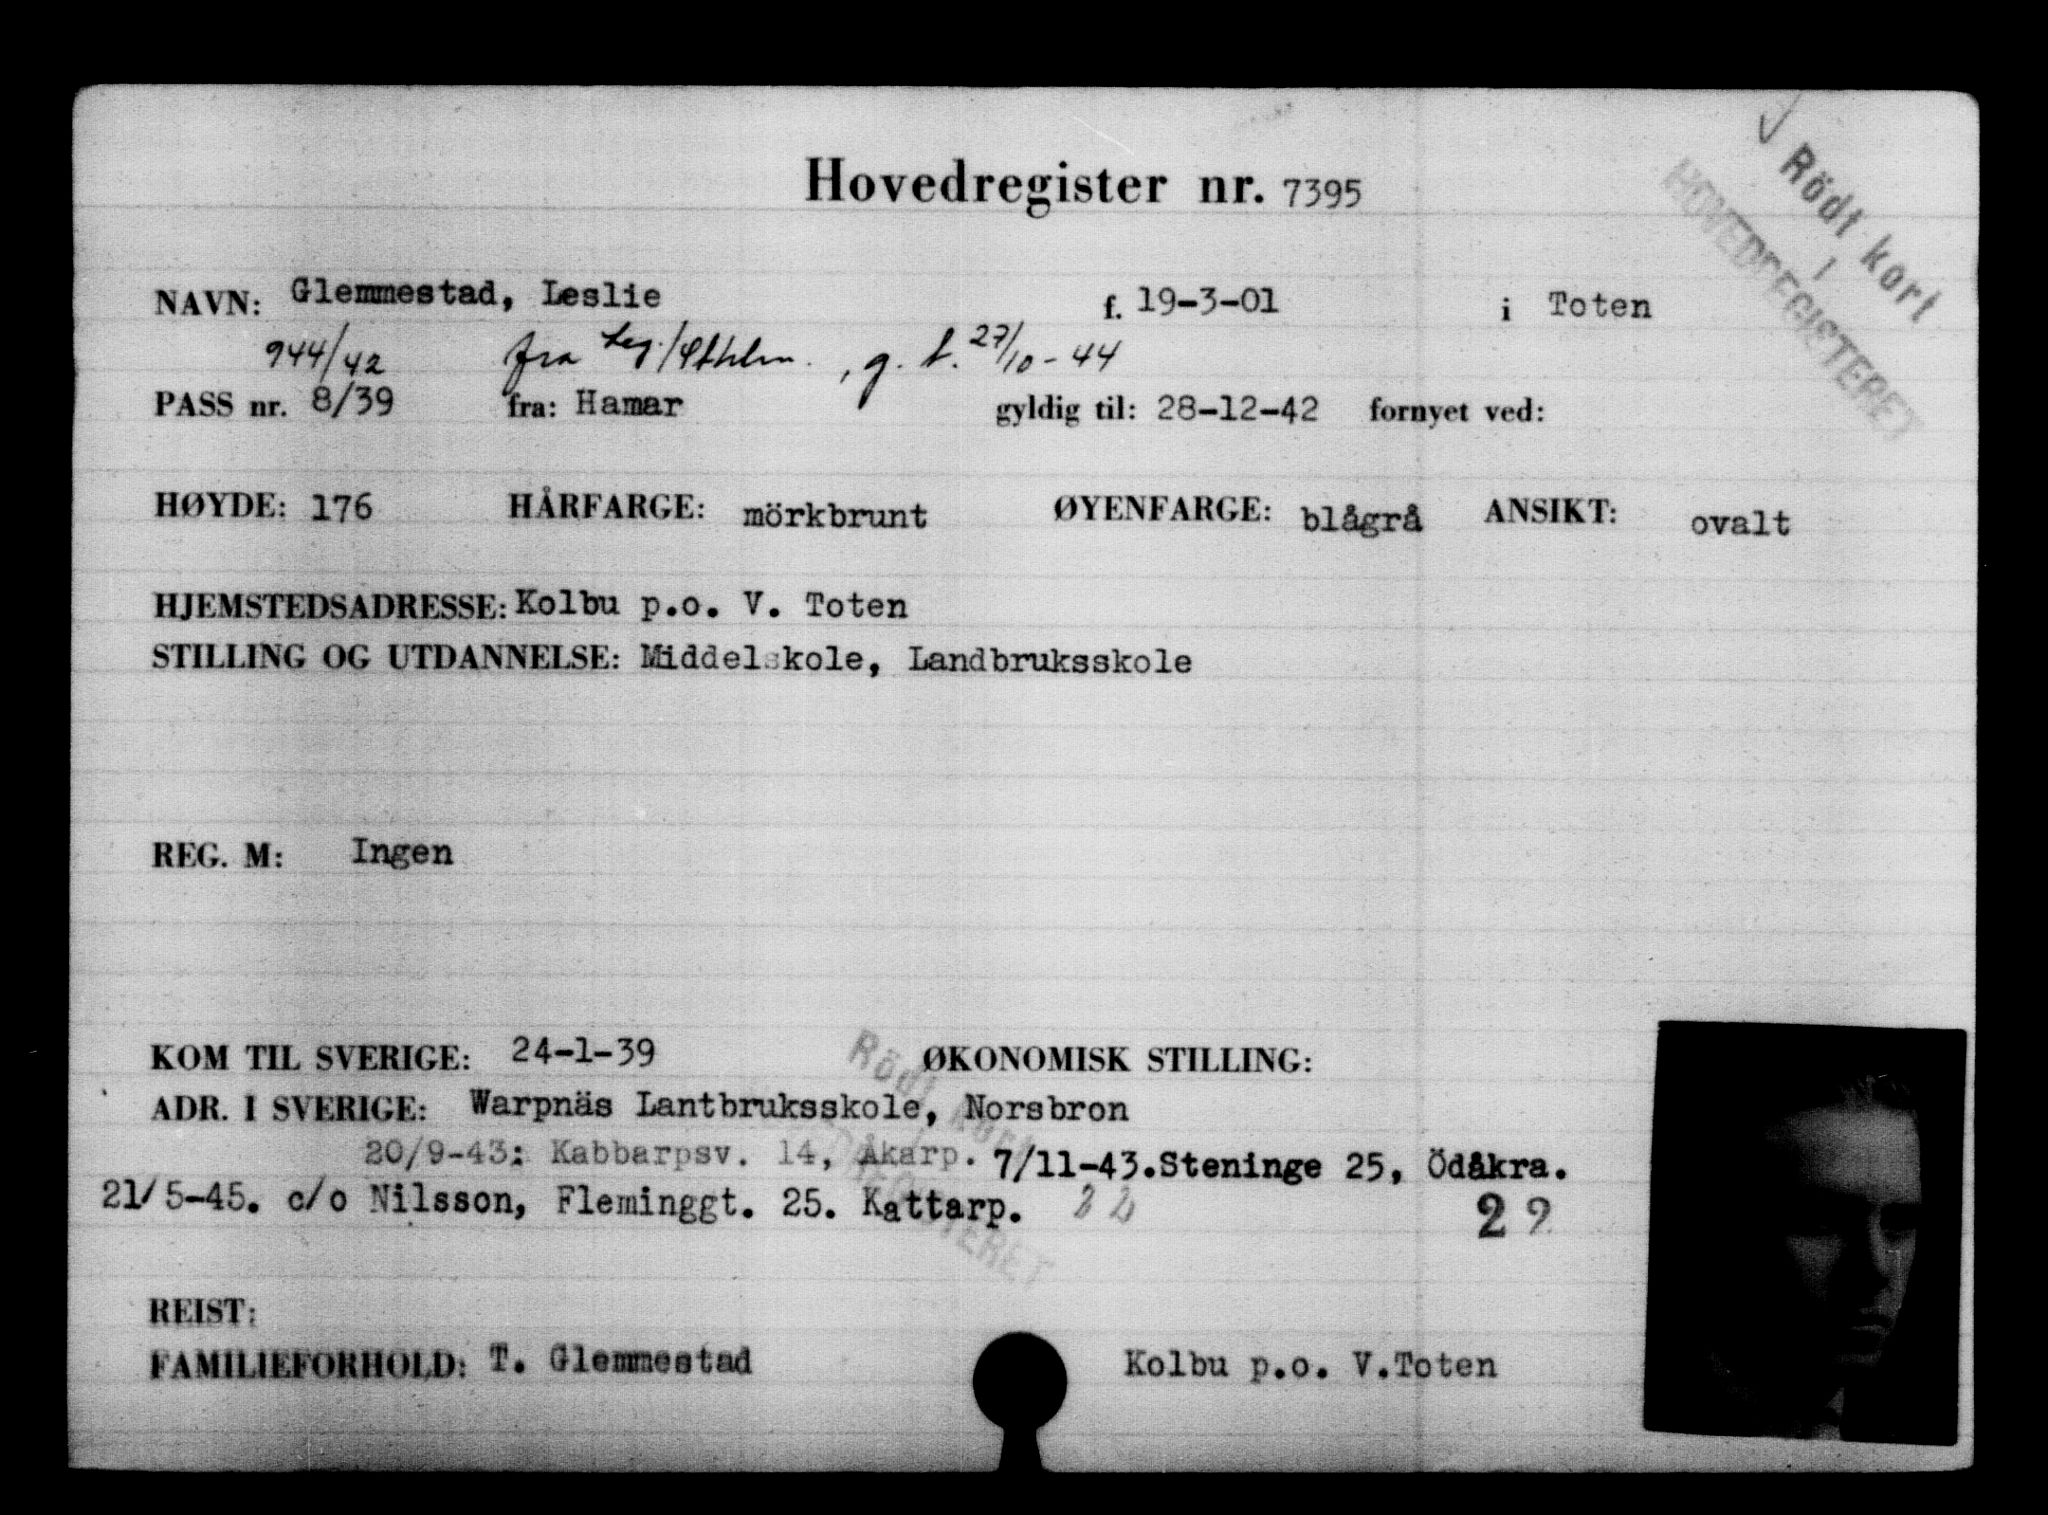 Rödt kort
I
HOVEDREGISTERET
Hovedregister nr. 7395
NAVN: Glemmestad, Leslie f. 19-3-01 i Toten
944/42 fra Leg./Sthlm., g. t. 27/10-44
PASS nr. 8/39 fra: Hamar gyldig til: 28-12-42 fornyet ved:
HØYDE: 176 HÅRFARGE: mörkbrunt ØYENFARGE: blågrå ANSIKT: ovalt
HJEMSTEDSADRESSE: Kolbu p.o. V. Toten
STILLING OG UTDANNELSE: Middelskole, Landbruksskole
REG. M: Ingen
KOM TIL SVERIGE: 24-1-39 ØKONOMISK STILLING:
Rödt kort
ADR. I SVERIGE: Warpnäs Lantbruksskole, Norsbron
20/9-43: Kabbarpsv. 14, Åkarp. 7/11-43.Steninge 25, Ödåkra.
21/5-45. c/o Nilsson, Fleminggt. 25. Kattarp. 2 2
REIST:
FAMILIEFORHOLD: T. Glemmestad Kolbu p.o. V.Toten